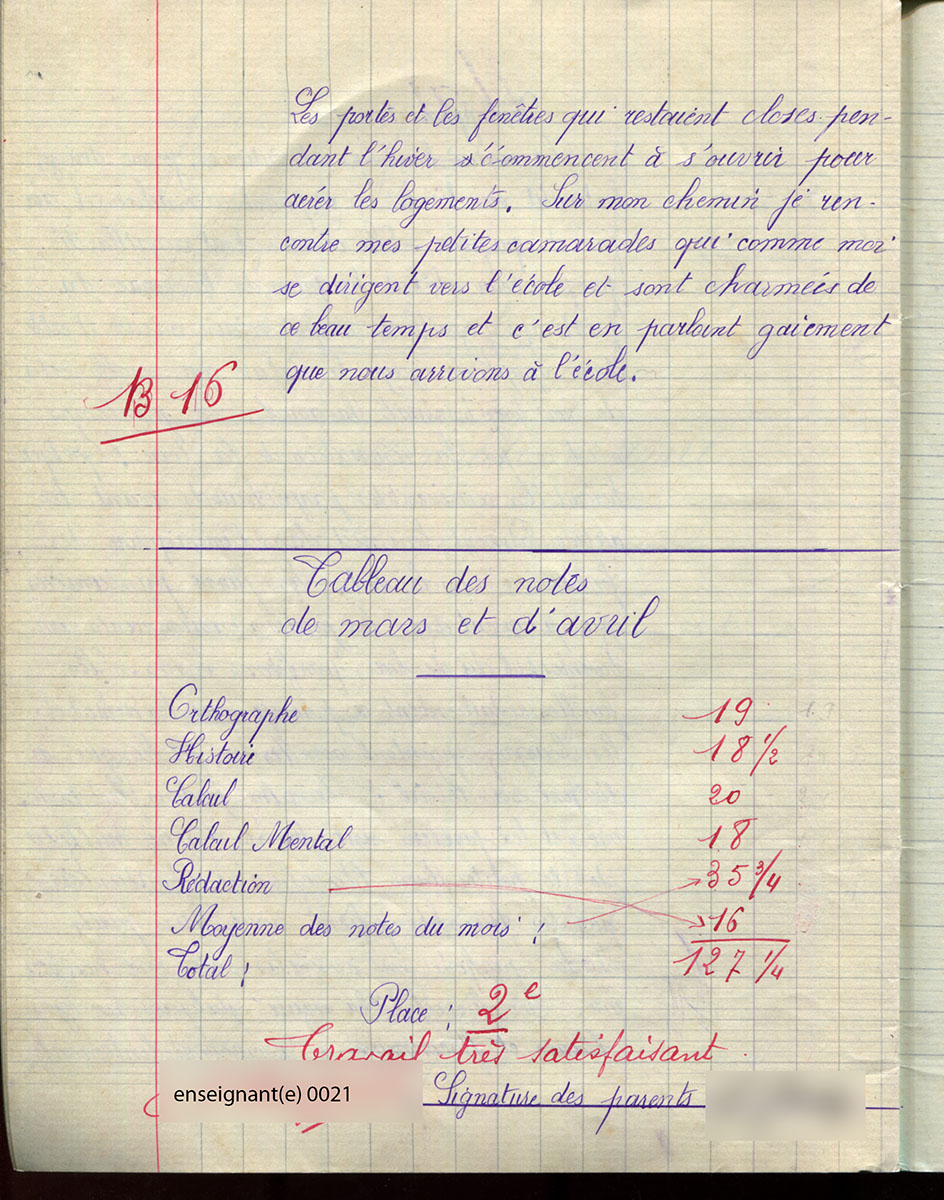 Les portes et les fenêtres qui restaient closes pen-
dant l'hiver commencent à s'ouvrir pour
aérer les logements. Sur mon chemin je ren-
contre mes petites camarades qui comme moi
se dirigent vers l'école et sont charmées de
ce beau temps et c'est en parlant gaiement
que nous arrivons à l'école.
B 16
Tableau des notes
de mars et d'avril
Orthographe 19
Histoire 18 1/2
Calcul 20
Calcul Mental 18
Rédaction 35 3/4
Moyenne des notes du mois : 16
Total : 127 1/4
Place : 2e
Travail très satisfaisant
enseignant(e) 0021
Signature des parents